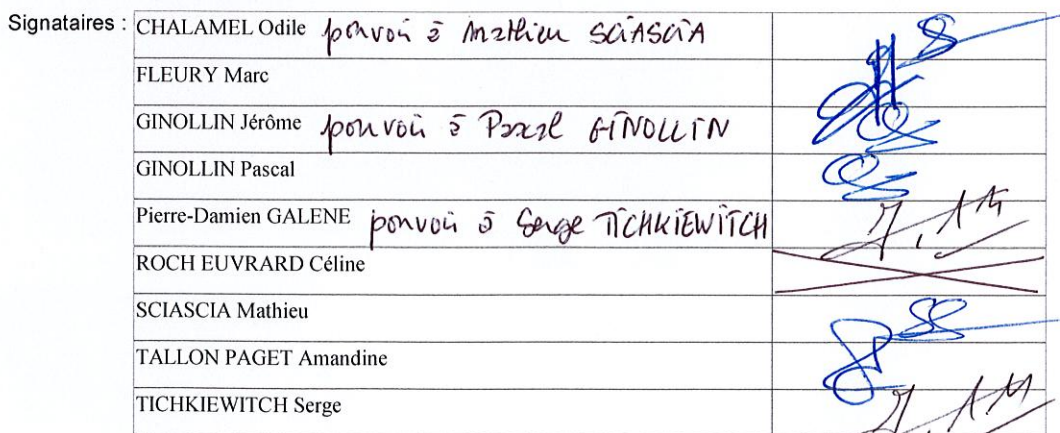 Signataires : CHALAMEL Odile pouvoir à Mathieu SCIASCIA
FLEURY Marc
GINOLLIN Jérôme pouvoir à Pascal GINOLLIN
GINOLLIN Pascal
Pierre-Damien GALENE pouvoir à Serge TICHKIEWITCH
ROCH EUVRARD Céline
SCIASCIA Mathieu
TALLON PAGET Amandine
TICHKIEWITCH Serge